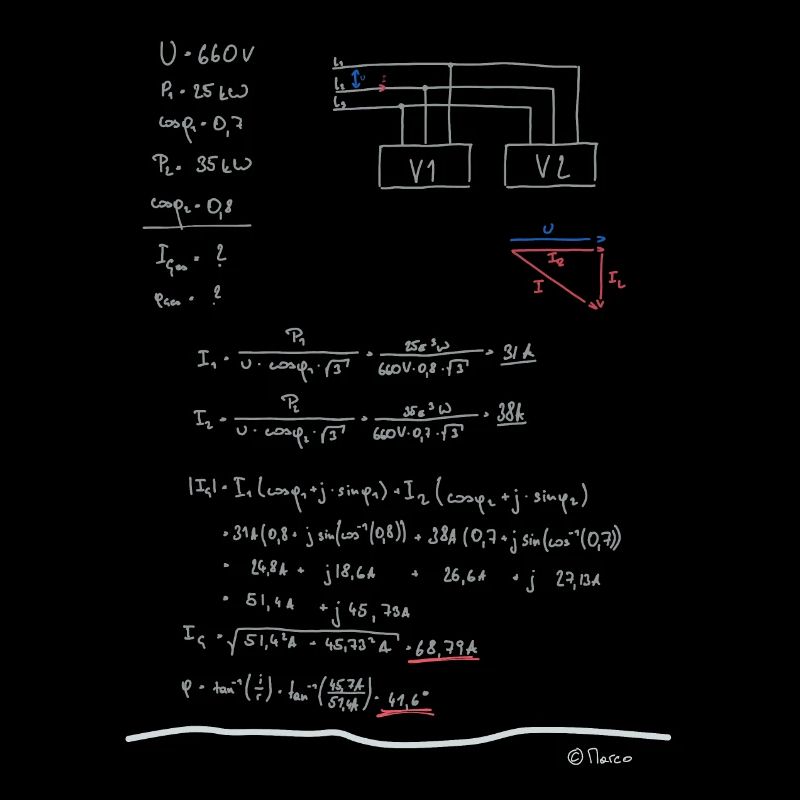 U = 660V
P₁ = 25 kW
cosφ₁ = 0,7
P₂ = 35 kW
cosφ₂ = 0,8
I_Ges = ?
φ_Ges = ?
L₁
L₂
L₃
U
V1
V2
U
I_R
I
I_L
I₁ = P₁ / (U · cosφ₁ · √3) = 25E³W / (660V · 0,8 · √3) = 31A
I₂ = P₂ / (U · cosφ₂ · √3) = 35E³W / (660V · 0,7 · √3) = 38A
|I_G| = I₁ (cosφ₁ + j · sinφ₁) + I₂ (cosφ₂ + j · sinφ₂)
= 31A (0,8 + j sin(cos⁻¹(0,8)) + 38A (0,7 + j sin(cos⁻¹(0,7))
= 24,8A + j 18,6A + 26,6A + j 27,13A
= 51,4A + j 45,73A
I_G = √(51,4²A + 45,73²A) = 68,79A
φ = tan⁻¹(i/r) = tan⁻¹(45,7A/51,4A) = 41,6°
© Marco